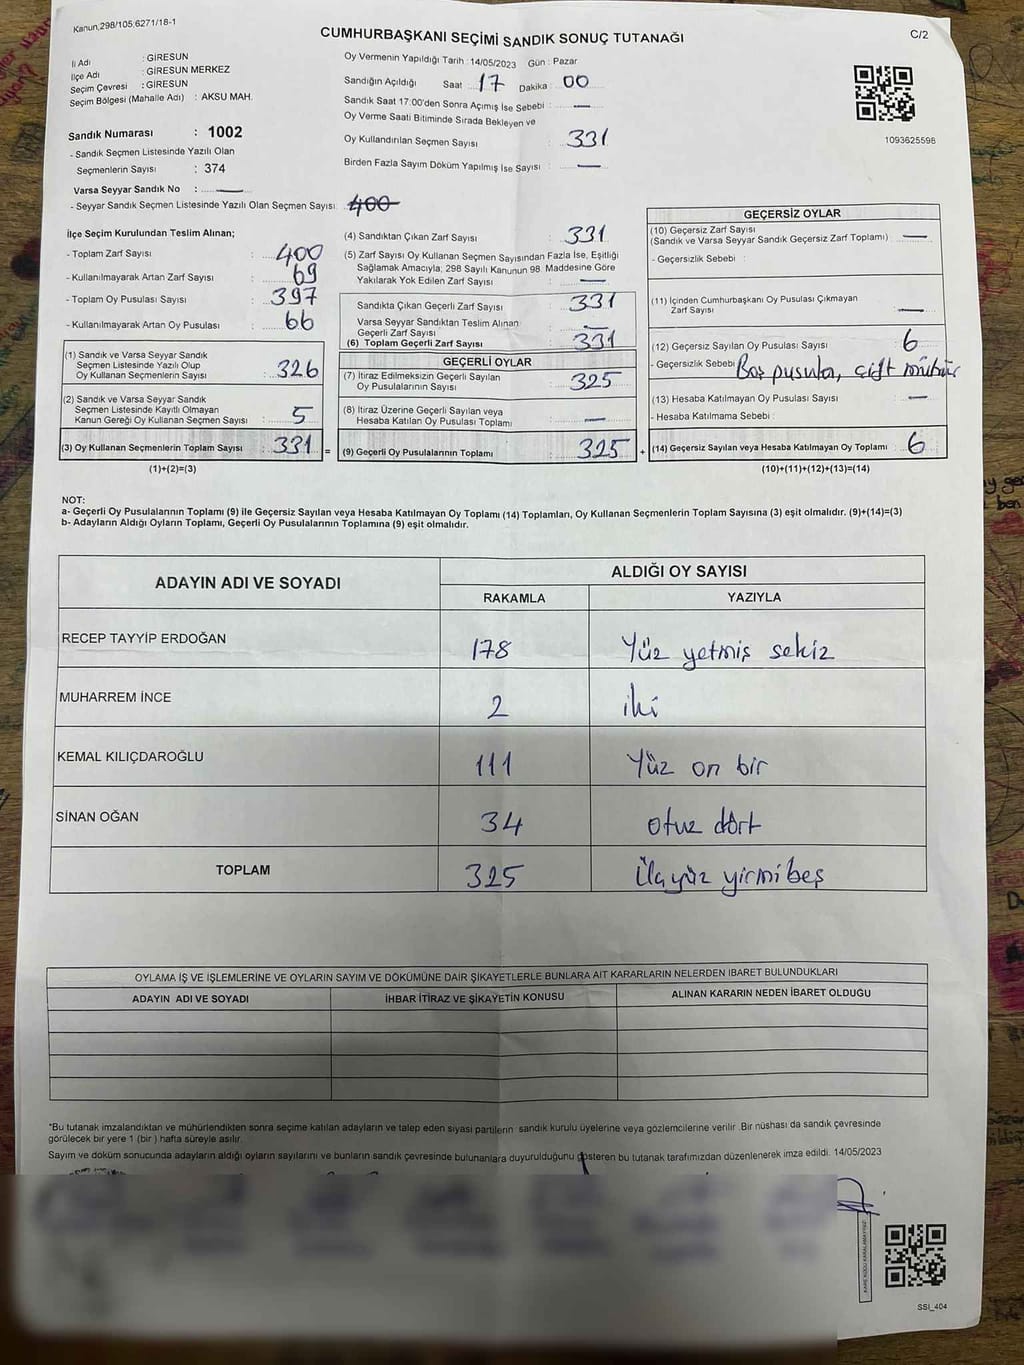 Kanun,298/105,6271/18-1
CUMHURBAŞKANI SEÇİMİ SANDIK SONUÇ TUTANAĞI
C/2
İl Adı : GİRESUN
İlçe Adı : GİRESUN MERKEZ
Seçim Çevresi : GİRESUN
Seçim Bölgesi (Mahalle Adı) : AKSU MAH.
Sandık Numarası : 1002
- Sandık Seçmen Listesinde Yazılı Olan
Seçmenlerin Sayısı : 374
Varsa Seyyar Sandık No : —
- Seyyar Sandık Seçmen Listesinde Yazılı Olan Seçmen Sayısı: 400
Oy Vermenin Yapıldığı Tarih : 14/05/2023 Gün : Pazar
Sandığın Açıldığı Saat 17 Dakika : 00
Sandık Saat 17:00'den Sonra Açımış İse Sebebi : —
Oy Verme Saati Bitiminde Sırada Bekleyen ve
Oy Kullandırılan Seçmen Sayısı : 331
Birden Fazla Sayım Döküm Yapılmış İse Sayısı : —
1093625598
İlçe Seçim Kurulundan Teslim Alınan;
- Toplam Zarf Sayısı : 400
- Kullanılmayarak Artan Zarf Sayısı : 69
- Toplam Oy Pusulası Sayısı : 397
- Kullanılmayarak Artan Oy Pusulası : 66
(1) Sandık ve Varsa Seyyar Sandık
Seçmen Listesinde Yazılı Olup
Oy Kullanan Seçmenlerin Sayısı : 326
(2) Sandık ve Varsa Seyyar Sandık
Seçmen Listesinde Kayıtlı Olmayan
Kanun Gereği Oy Kullanan Seçmen Sayısı : 5
(3) Oy Kullanan Seçmenlerin Toplam Sayısı : 331 =
(1)+(2)=(3)
(4) Sandıktan Çıkan Zarf Sayısı : 331
(5) Zarf Sayısı Oy Kullanan Seçmen Sayısından Fazla İse, Eşitliği
Sağlamak Amacıyla; 298 Sayılı Kanunun 98. Maddesine Göre
Yakılarak Yok Edilen Zarf Sayısı : —
Sandıkta Çıkan Geçerli Zarf Sayısı : 331
Varsa Seyyar Sandıktan Teslim Alınan
Geçerli Zarf Sayısı : —
(6) Toplam Geçerli Zarf Sayısı : 331
GEÇERLİ OYLAR
(7) İtiraz Edilmeksizin Geçerli Sayılan
Oy Pusulalarının Sayısı : 325
(8) İtiraz Üzerine Geçerli Sayılan veya
Hesaba Katılan Oy Pusulası Toplamı : —
(9) Geçerli Oy Pusulalarının Toplamı : 325 +
GEÇERSİZ OYLAR
(10) Geçersiz Zarf Sayısı
(Sandık ve Varsa Seyyar Sandık Geçersiz Zarf Toplamı) : —
- Geçersizlik Sebebi :
(11) İçinden Cumhurbaşkanı Oy Pusulası Çıkmayan
Zarf Sayısı : —
(12) Geçersiz Sayılan Oy Pusulası Sayısı : 6
- Geçersizlik Sebebi Boş pusula, çift mühür
(13) Hesaba Katılmayan Oy Pusulası Sayısı : —
- Hesaba Katılmama Sebebi :
(14) Geçersiz Sayılan veya Hesaba Katılmayan Oy Toplamı : 6
(10)+(11)+(12)+(13)=(14)
NOT:
a- Geçerli Oy Pusulalarının Toplamı (9) ile Geçersiz Sayılan veya Hesaba Katılmayan Oy Toplamı (14) Toplamları, Oy Kullanan Seçmenlerin Toplam Sayısına (3) eşit olmalıdır. (9)+(14)=(3)
b- Adayların Aldığı Oyların Toplamı, Geçerli Oy Pusulalarının Toplamına (9) eşit olmalıdır.
ADAYIN ADI VE SOYADI ALDIĞI OY SAYISI
RAKAMLA YAZIYLA
RECEP TAYYİP ERDOĞAN 178 Yüz yetmiş sekiz
MUHARREM İNCE 2 iki
KEMAL KILIÇDAROĞLU 111 Yüz on bir
SİNAN OĞAN 34 otuz dört
TOPLAM 325 Üçyüz yirmibeş
OYLAMA İŞ VE İŞLEMLERİNE VE OYLARIN SAYIM VE DÖKÜMÜNE DAİR ŞİKAYETLERLE BUNLARA AİT KARARLARIN NELERDEN İBARET BULUNDUKLARI
ADAYIN ADI VE SOYADI İHBAR İTİRAZ VE ŞİKAYETİN KONUSU ALINAN KARARIN NEDEN İBARET OLDUĞU
*Bu tutanak imzalandıktan ve mühürlendikten sonra seçime katılan adayların ve talep eden siyasi partilerin sandık kurulu üyelerine veya gözlemcilerine verilir .Bir nüshası da sandık çevresinde
görülecek bir yere 1 (bir ) hafta süreyle asılır.
Sayım ve döküm sonucunda adayların aldığı oyların sayılarını ve bunların sandık çevresinde bulunanlara duyurulduğunu gösteren bu tutanak tarafımızdan düzenlenerek imza edildi. 14/05/2023
KARE KODU KARALAMAYINIZ
SSİ_404